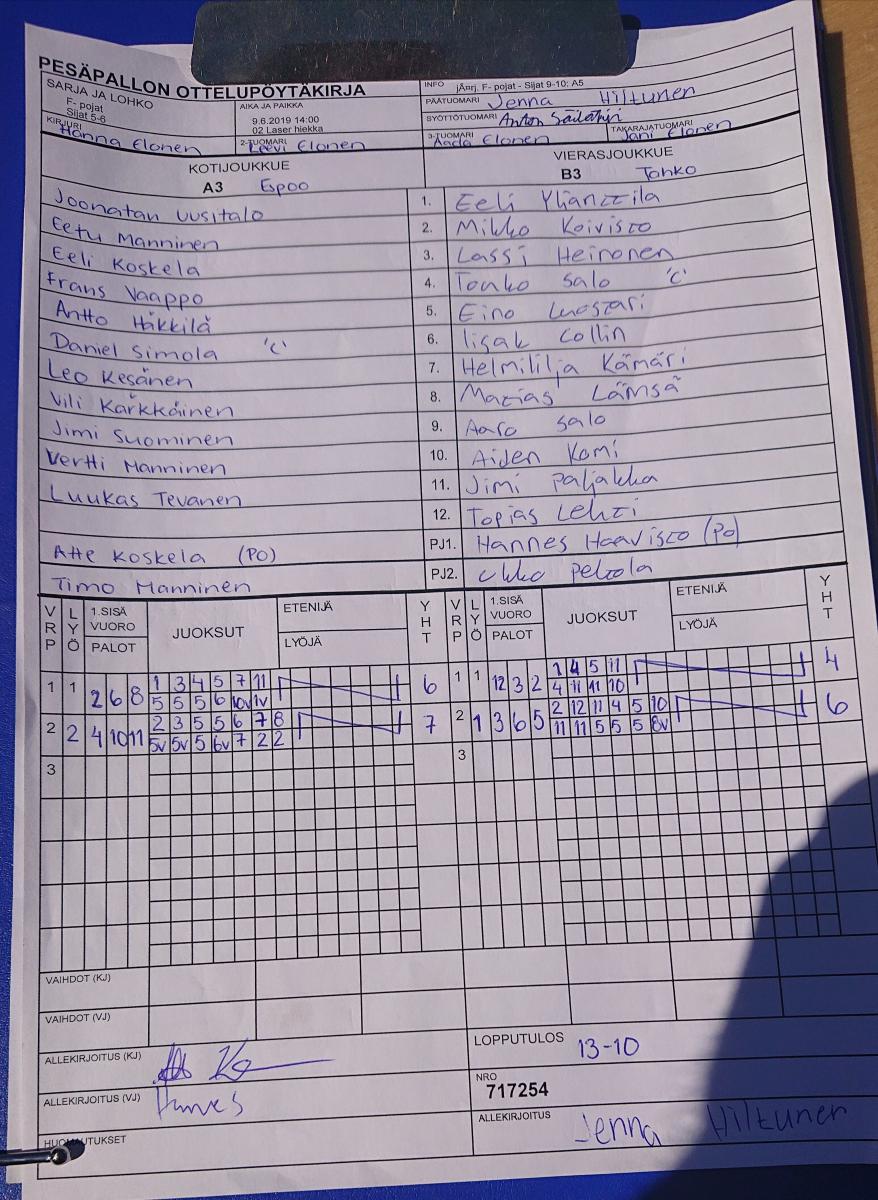 PESÄPALLON OTTELUPÖYTÄKIRJA
SARJA JA LOHKO
F- pojat
Sijat 5-6
AIKA JA PAIKKA
9.6.2019 14:00
02 Laser hiekka
INFO jÄrj. F- pojat - Sijat 9-10: A5
PÄÄTUOMARI Jenna Hiltunen
SYÖTTÖTUOMARI Anton Säilähiri
KIRJURI Hanna Elonen
2-TUOMARI Leevi Elonen
3-TUOMARI Aada Elonen
TAKARAJATUOMARI Jani Elonen
KOTIJOUKKUE
A3 Espoo
VIERASJOUKKUE
B3 Tahko
Joonatan Uusitalo 1. Eeli Yliannttila
Eetu Manninen 2. Mikko Koivisto
Eeli Koskela 3. Lassi Heinonen
Frans Vaappo 4. Touko Salo 'C'
Antto Häkkilä 5. Eino Luostari
Daniel Simola 'C' 6. Iisak Collin
Leo Kesänen 7. Helmililja Kämäri
Vili Kärkkäinen 8. Matias Lämsä
Jimi Suominen 9. Aaro Salo
Vertti Manninen 10. Aiden Komi
Luukas Tevanen 11. Jimi Paljakka
12. Topias Lehti
Atte Koskela (PO) PJ1. Hannes Haavisto (PO)
Timo Manninen PJ2. Ukko Peltola
VRP LYÖ 1.SISÄ VUORO PALOT JUOKSUT ETENIJÄ LYÖJÄ YHT VRP LYÖ 1.SISÄ VUORO PALOT JUOKSUT ETENIJÄ LYÖJÄ YHT
1 1 2 6 8 1 3 4 5 7 11 6 1 1 12 3 2 1 4 5 11 4
5 5 5 6 10v 1v 4 11 11 10
2 2 4 10 11 2 3 5 5 6 7 8 7 2 1 3 6 5 2 12 11 4 5 10 6
5v 5v 5 6v 7 2 2 11 11 5 5 5 8v
3 3
VAIHDOT (KJ)
VAIHDOT (VJ)
ALLEKIRJOITUS (KJ)
LOPPUTULOS 13-10
ALLEKIRJOITUS (VJ) Hannes
NRO
717254
HUOMAUTUKSET
ALLEKIRJOITUS Jenna Hiltunen